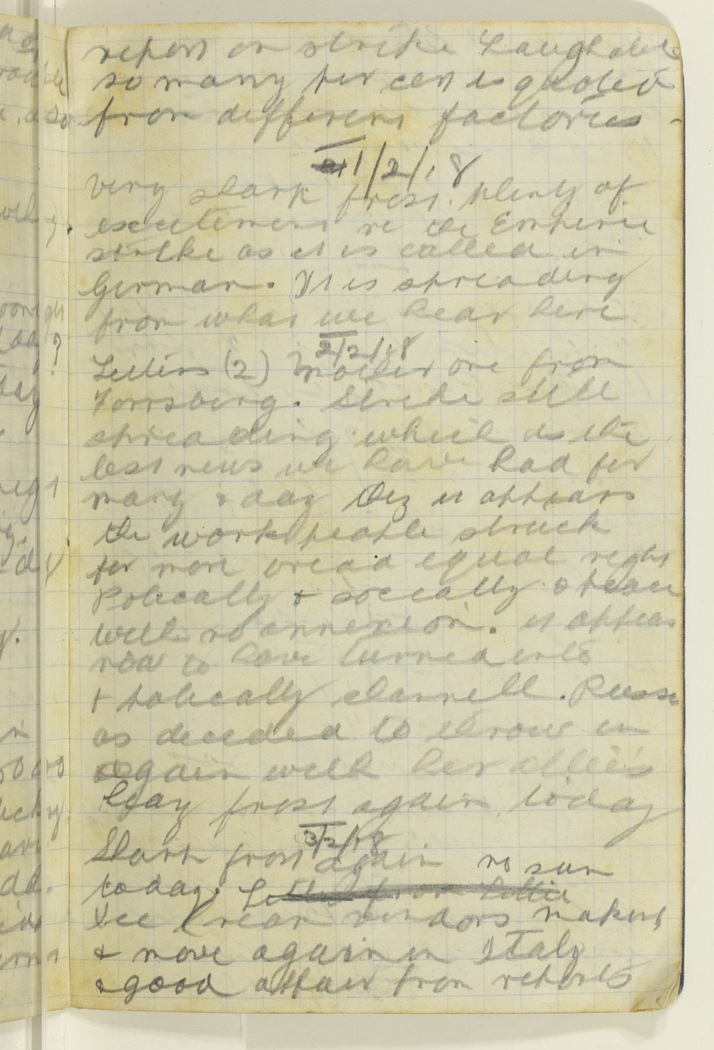 report on strike Laughable
so many per cent is quoted
from different factories -
1/2/18
Very sharp frost. plenty of
excitement re the Empire
strike as it is called in
German. It is spreading
from what we hear here
2/2/18
Letters (2) Mother one from
Strike still
spreading which is the
best news we have had for
many a day they it appears
the work people struck
for more bread equal right
Polically & socially & peace
with no annexion. it appears
now to have turned into
a polically channell. Russi
as decided to throw in
again with her allies
Heavy frost again today
3/2/18
Sharp frost again no sun
today.
We hear making
a move again in Italy
a good affair from reports